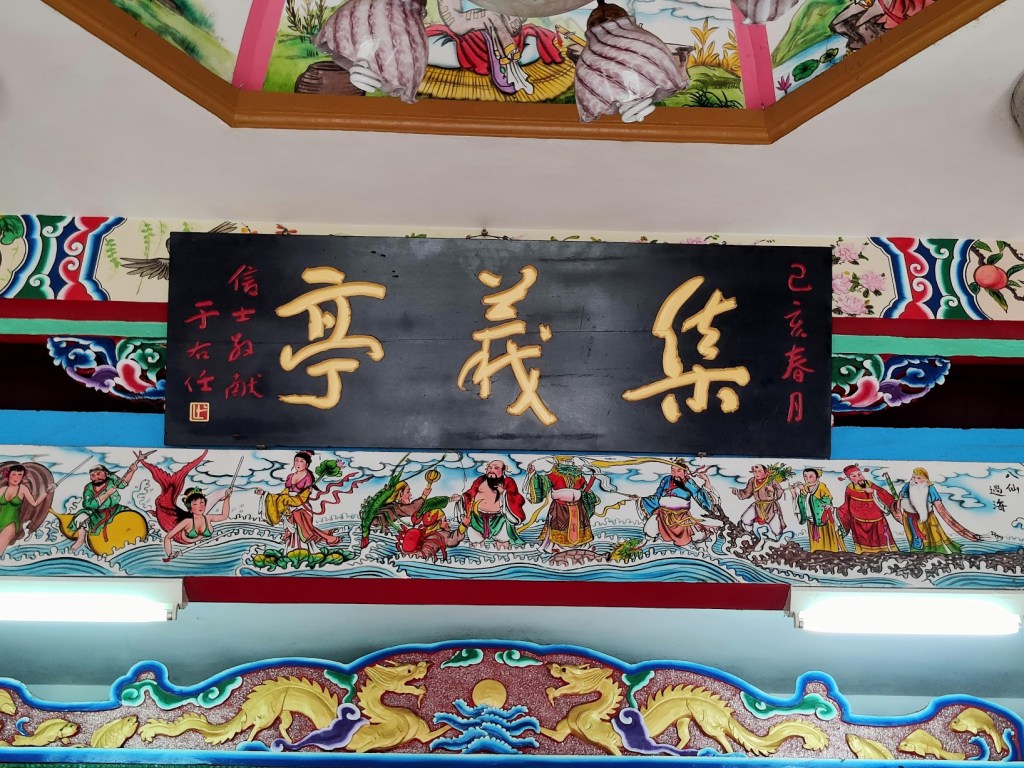 己亥春月
集義亭
信士敬献
于右任
仙
過海